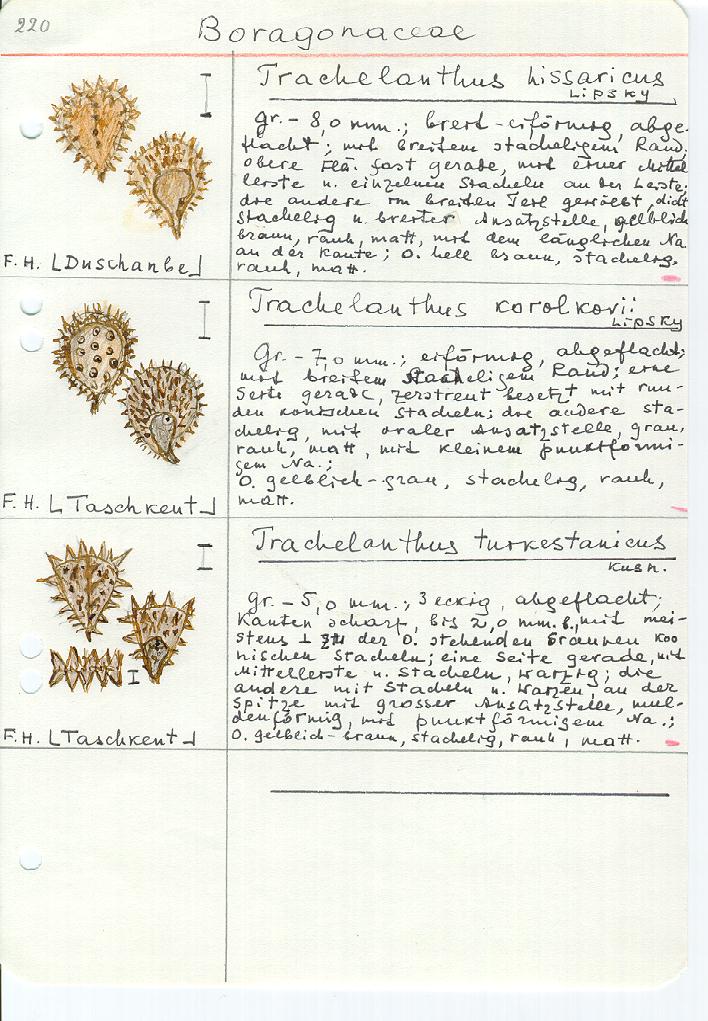 220
Boragonaceae
Trachelanthus hissaricus
Lipsky
gr. - 8,0 mm.; breit-eiförmig, abge-
flacht; mit breitem stacheligem Rand;
obere Flä. fast gerade, mit einer Mittel
leiste u. einzelnen Stacheln an der Leiste;
die andere im breiten Teil gewölbt, dicht
stachelig u. breiter Ansatzstelle, gelblich
braun, rauh, matt, mit dem länglichen Na
an der Kante; O. hell braun, stachelig,
rauh, matt.
F. H. [Duschanbe]
Trachelanthus korolkovii
Lipsky
gr. - 7,0 mm.; eiförmig, abgeflacht;
mit breitem stacheligem Rand; eine
Seite gerade, zerstreut besetzt mit run-
den konischen Stacheln; die andere sta-
chelig, mit ovaler Ansatzstelle, grau,
rauh, matt, mit kleinem punktförmi-
gem Na.;
O. gelblich-grau, stachelig, rauh,
matt.
F. H. [Taschkent]
Trachelanthus turkestanicus
Kush.
gr. - 5,0 mm.; 3eckig, abgeflacht;
Kanten scharf, bis 2,0 mm. b., mit mei-
stens ⊥ zu der O. stehenden braunen koo
nischen Stacheln; eine Seite gerade, mit
Mittelleiste u. Stacheln, warzig; die
andere mit Stacheln u. Warzen, an der
Spitze mit grosser Ansatzstelle, mul-
denförmig, mit punktförmigem Na.;
O. gelblich-braun, stachelig, rauh, matt.
F. H. [Taschkent]